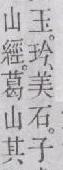 玉。玪、美石。子
山經。葛山其